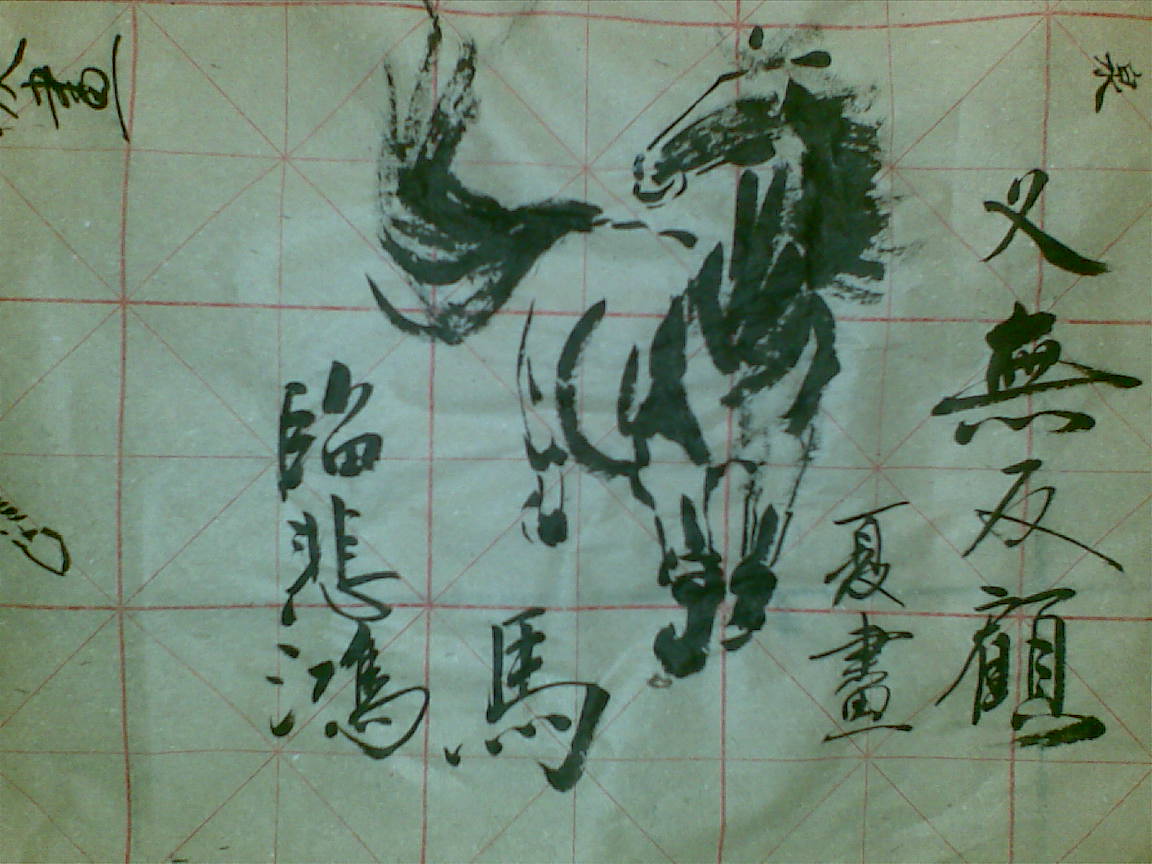 义無反顧
夏畫
臨悲鴻
馬